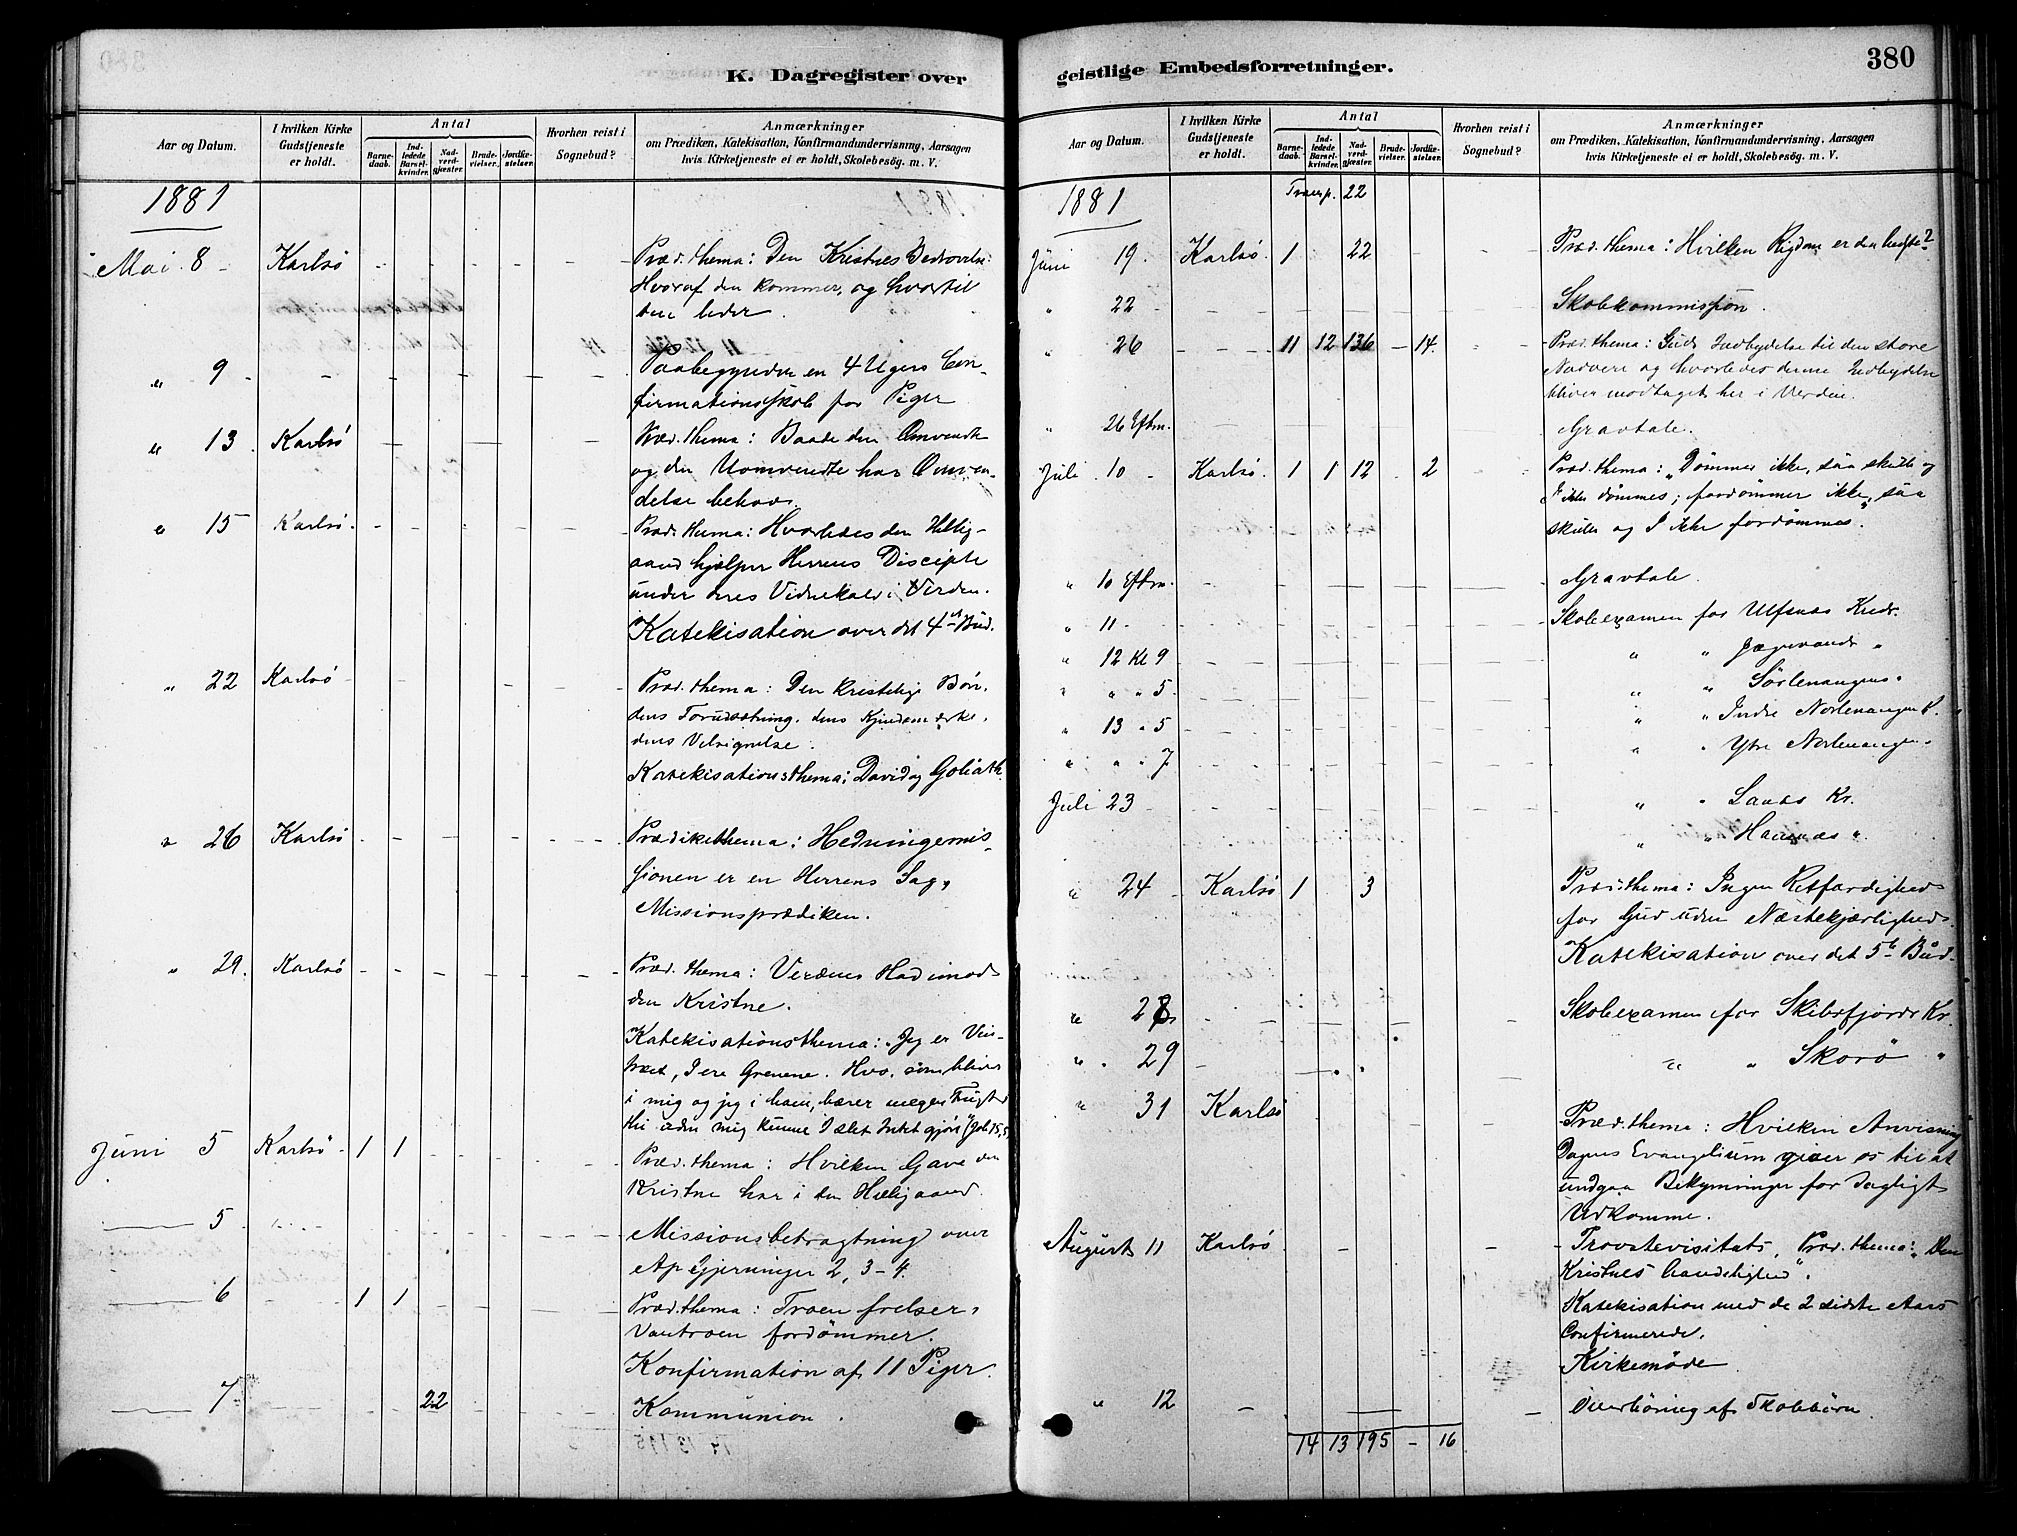 K. Dagregister over
Aar og Datum.
I hvilken Kirke Gudstjeneste er holdt.
Antal
Barnedaab.
Indledede Barselkvinder.
Nadverdgjæster.
Brudevielser.
Jordfæstelser.
Hvorhen reist i Sognebud?
Anmærkninger
om Prædiken, Katekisation, Konfirmandundervisning, Aarsagen
hvis Kirketjeneste ei er holdt, Skolebesög. m. V.
1881
Mai 8 Karlsö Præd. thema: Den Kristnes Bedrövelse:
Hvoraf den kommer, og hvortil
den leder.
" 9 Paabegyndte en 4 Ugers Con-
firmationsskole for Piger
" 13 Karlsö Præd. thema: Baade den Omvendte
og den Uomvendte har Omven-
delse behov.
" 15 Karlsö Præd. thema: Hvorledes den Hellig-
aand hjælper Herrens Disciple
under deres Vidnekald i Verden.
Katekisation over det 4de Bud.
" 22 Karlsö Præd. thema: Den kristelige Bön,
dens Forudsætning, dens
dens Velsignelse.
Katekisationsthema: David og Goliath.
" 26 Karlsö Prædikethema: Hedningemis-
sionen er en Herrens Sag.
Missionsprædiken.
" 29. Karlsö Præd. thema: Verdens Had imod
den Kristne.
Katekisationsthema: "Jeg er Vin-
træet, I ere Grenene. Hvo, som bliver
i mig og jeg i ham, bærer megen Frugt
thi uden mig kunne I slet Intet gjöre" (Joh. 15,5)
Juni 5 Karlsö 1 1 Præd. thema: Hvilken Gave den
Kristne har i den Helligaand.
5 Missionsbetragtning over
Ap Gjerninger 2, 3-4.
6 1 1 Præd. thema: Troen frelser,
Vantroen fordömmer.
Konfirmation af 11 Piger.
7 22 Kommunion.
geistlige Embedsforretninger.
380
Aar og Datum.
I hvilken Kirke Gudstjeneste er holdt.
Antal
Barnedaab.
Indledede Barselkvinder.
Nadverdgjæster.
Brudevielser.
Jordfæstelser.
Hvorhen reist i Sognebud?
Anmærkninger
om Prædiken, Katekisation, Konfirmandundervisning, Aarsagen
hvis Kirketjeneste ei er holdt, Skolebesög. m. V.
1881 Transp. 22
Juni 19. Karlsö. 1 22 Præd. thema: Hvilken Rigdom er den bedste?
" 22 Skolekommission.
" 26 11 12 136 - 14. Præd. thema: Guds Indbydelse til den store
Nadvere og hvorledes denne Indbydelse
bliver modtaget her i Verden.
" 26 Eftm. Gravtale.
Juli 10 Karlsö. 1 1 12 2 Præd. thema: "Dömmer ikke, saa skulle og
I ikke dömmes; fordömmer ikke, saa
skulle og I ikke fordömmes."
" 10 Eftm. Gravtale.
" 11 Skolexamen for Ulfsnæs Kreds.
" 12 Kl 9 " " Jægervands "
" " " 5 " " Sörlenangens "
" 13 " 5 " " Indre Norlenangen K.
" " " 7 " " Ytre Norlenangen "
Juli 23 " " Kr.
" " "
" 24 Karlsö 1 3 Præd. thema: Ingen Retfærdighed
for Gud uden Næstekjærlighed.
Katekisation over det 5te Bud.
" 28 Skolexamen for Skibsfjords Kr.
" 29 " " Skorö "
" 31 Karlsö Præd. thema: Hvilken Anvisning
Dagens Evangelium giver os til at
undgaa Bekymringer for dagligt
Udkomme.
August 11 Karlsö Provstevisitats, Præd. thema: "Den
Kristnes
Katekisation med de 2 sidste Aars
Confirmerede.
Kirkemöde
" 12 Overhöring af Skolebörn.
14 13 195 - 16